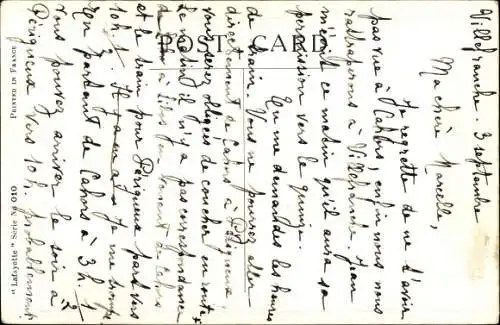 POST CARD
Villefranche. 3 septembre
Ma chère Marcelle,
Je regrette de ne t'avoir
pas vue à Cahors; enfin nous nous
rattraperons à Villefranche. Jean
m'écrit ce matin qu'il aura sa
permission vers le quinze.
Tu me demandes les heures
de train. Vous ne pouvez aller
directement de Cahors à Périgueux
vous serez obligés de coucher en route
le matin il n'y a pas correspondance
en venant de Cahors
et le train pour Périgueux part vers
10h. 1
En partant de Cahors à 3h. 1/2
vous pouvez arriver le soir à
Périgueux vers 10h. probablement
"Lafayette" Série No 010
PRINTED IN FRANCE